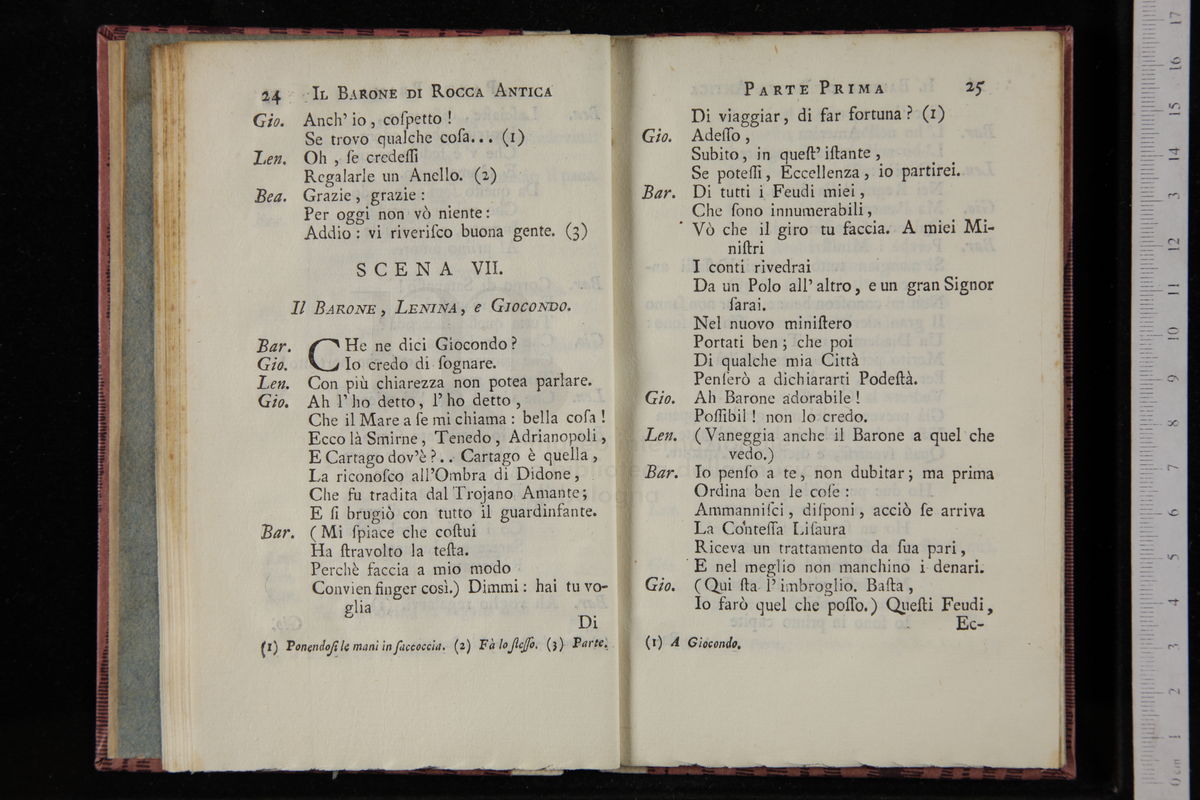 24 IL BARONE DI ROCCA ANTICA
Gio. Anch' io, coſpetto !
Se trovo qualche coſa... (1)
Len. Oh, ſe credeſſi
Regalarle un Anello. (2)
Bea. Grazie, grazie :
Per oggi non vò niente :
Addio : vi riveriſco buona gente. (3)
SCENA VII.
Il BARONE, LENINA, e GIOCONDO.
Bar. CHe ne dici Giocondo ?
Gio. Io credo di ſognare.
Len. Con più chiarezza non potea parlare.
Gio. Ah l' ho detto, l' ho detto,
Che il Mare a ſe mi chiama : bella coſa !
Ecco là Smirne, Tenedo, Adrianopoli,
E Cartago dov'è ?.. Cartago è quella,
La riconoſco all'Ombra di Didone,
Che fu tradita dal Trojano Amante;
E ſi brugiò con tutto il guardinfante.
Bar. (Mi ſpiace che coſtui
Ha ſtravolto la teſta.
Perchè faccia a mio modo
Convien finger così.) Dimmi : hai tu vo-
glia
Di
(1) Ponendoſi le mani in ſaccoccia. (2) Fà lo ſteſſo. (3) Parte.
PARTE PRIMA 25
Di viaggiar, di far fortuna ? (1)
Gio. Adeſſo,
Subito, in queſt' iſtante,
Se poteſſi, Eccellenza, io partirei.
Bar. Di tutti i Feudi miei,
Che ſono innumerabili,
Vò che il giro tu faccia. A miei Mi-
niſtri
I conti rivedrai
Da un Polo all' altro, e un gran Signor
ſarai.
Nel nuovo miniſtero
Portati ben ; che poi
Di qualche mia Città
Penſerò a dichiararti Podeſtà.
Gio. Ah Barone adorabile !
Poſſibil ! non lo credo.
Len. (Vaneggia anche il Barone a quel che
vedo.)
Bar. Io penſo a te, non dubitar ; ma prima
Ordina ben le coſe :
Ammanniſci, diſponi, acciò ſe arriva
La Conteſſa Liſaura
Riceva un trattamento da ſua pari,
E nel meglio non manchino i denari.
Gio. (Qui ſta l' imbroglio. Baſta,
Io farò quel che poſſo.) Queſti Feudi,
Ec-
(1) A Giocondo.